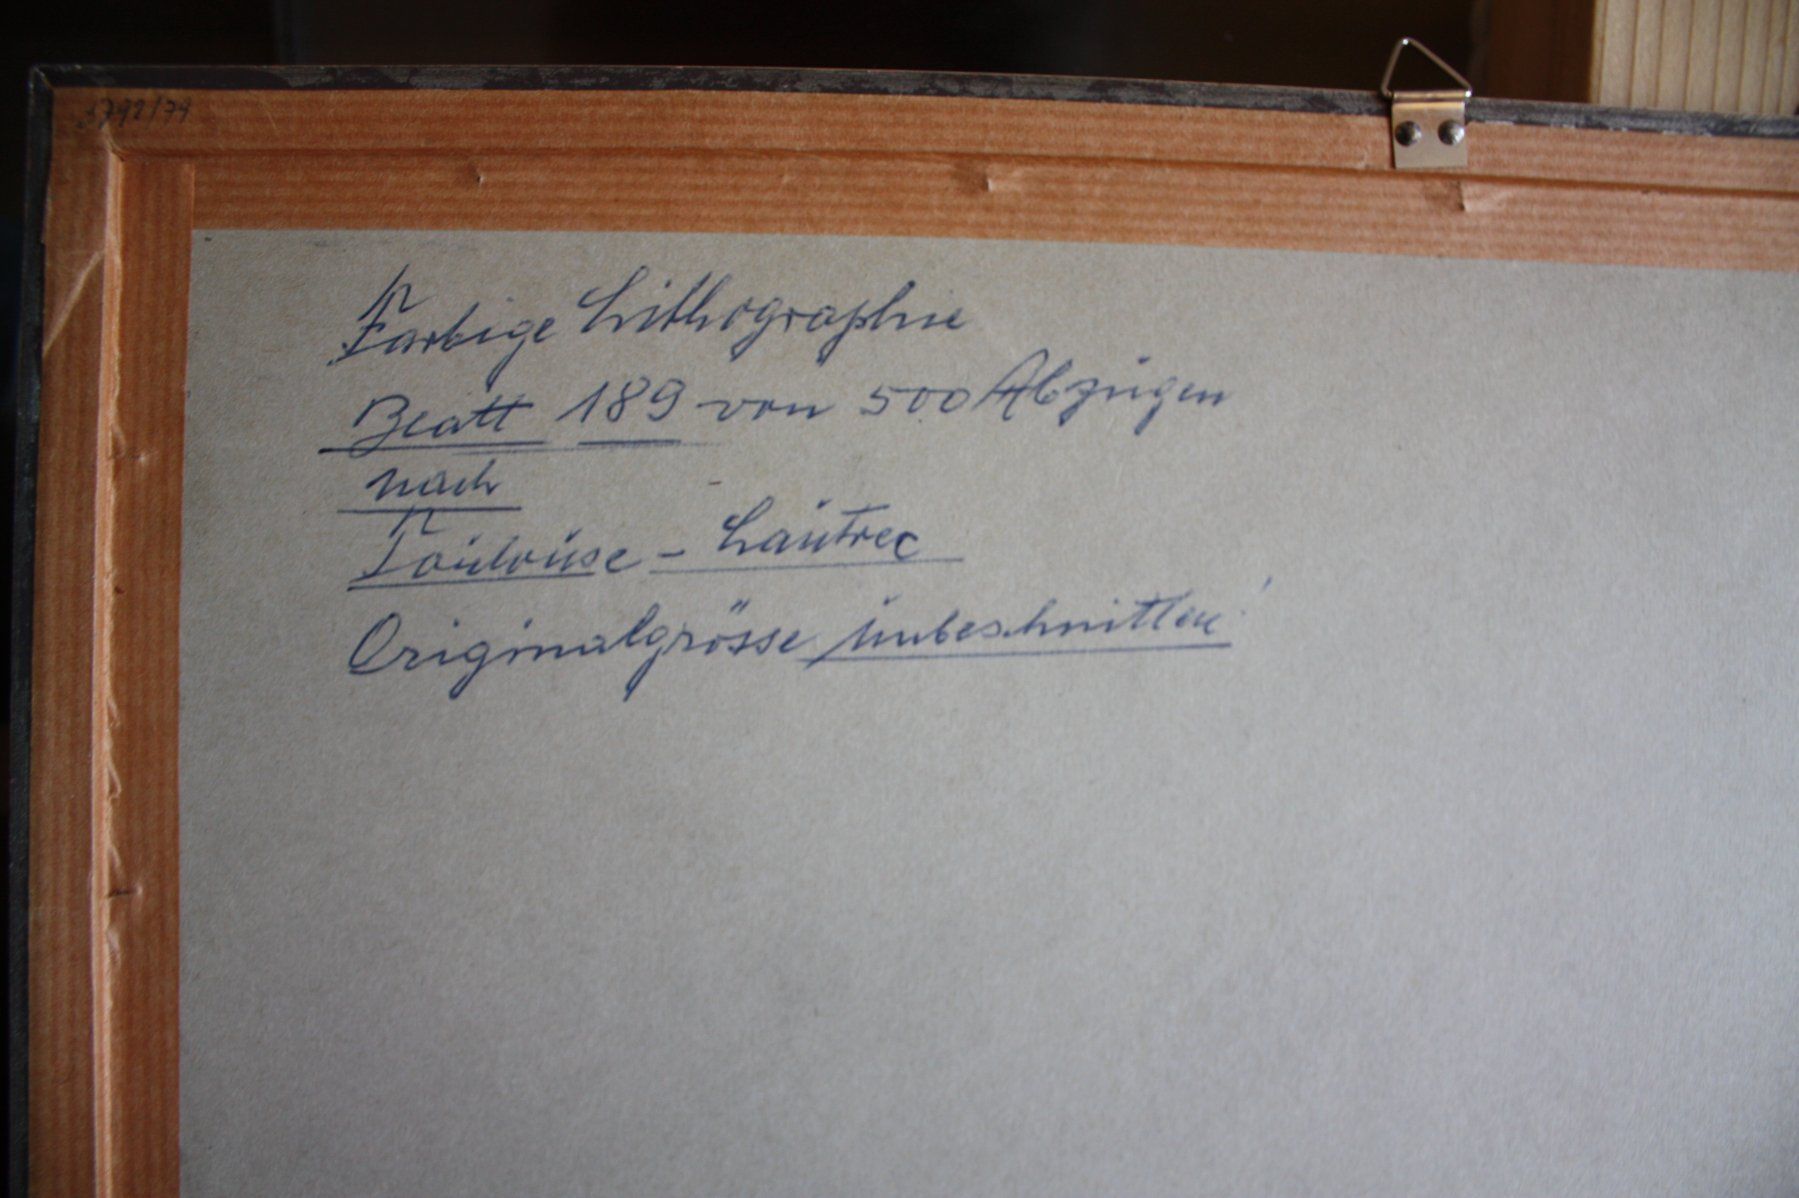 Farbige Lithographie
Blatt 189 von 500 Abzügen
nach
Toulouse - Lautrec
Originalgrösse unbeschnitten!